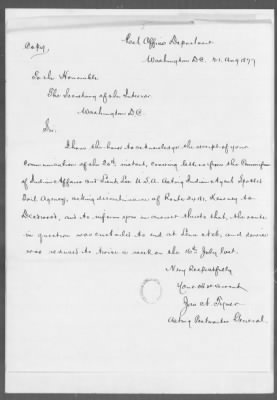 Copy.
Post Office Department
Washington D.C. 21. Aug 1877
To the Honorable
The Secretary of the Interior
Washington D.C.
Sir.
I have the honor to acknowledge the receipt of your
communication of the 20th instant, covering letters from the Commissioner
of Indian Affairs and Lieut Lee U.S.A. Acting Indian Agent Spotted
Tail Agency, asking discontinuance of Route Kearney to
Deadwood, and to inform you in answer thereto that, the route
in question was curtailed to end at and service
was reduced to twice a week on the July last.
Very Respectfully
Your obt servant
Jas. N. Tyner
Acting Postmaster General.